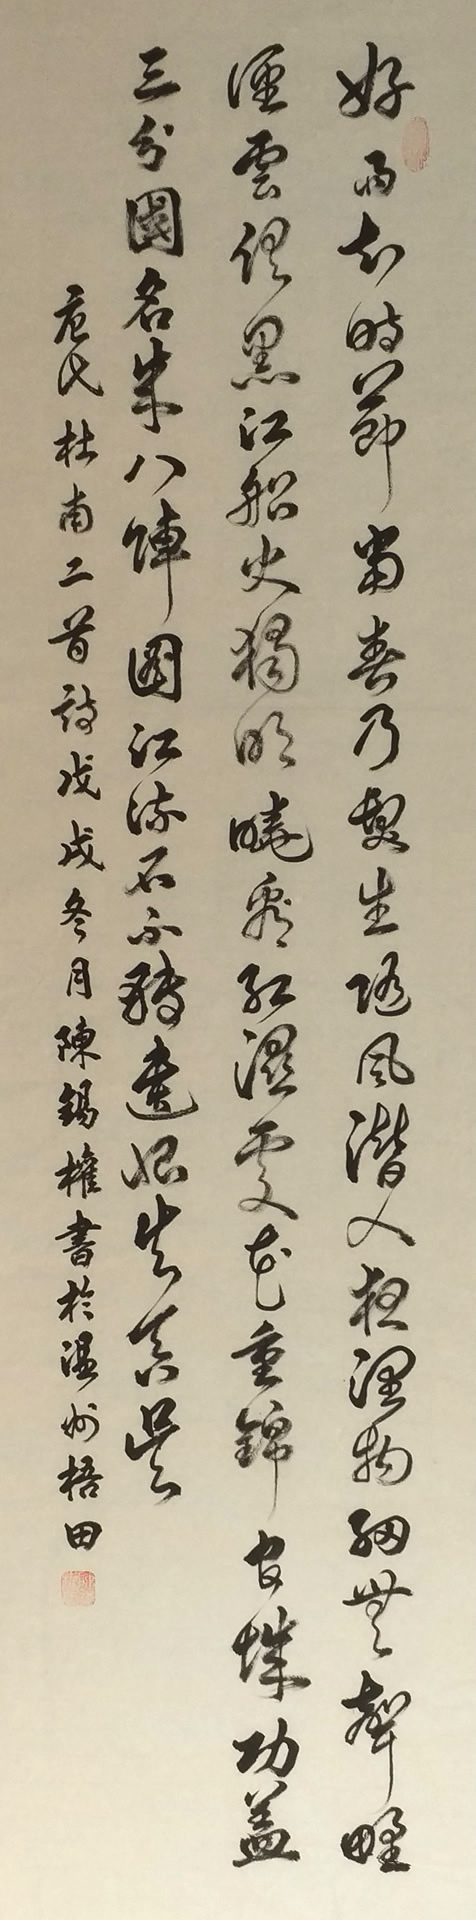 好雨知時節當春乃發生隨風潛入夜潤物細無聲野
徑雲俱黑江船火獨明曉看紅濕處花重錦官城功蓋
三分國名成八陣圖江流石不轉遺恨失吞吳
杜甫二首詩戊戌冬月陳錫權書於溫州梧田